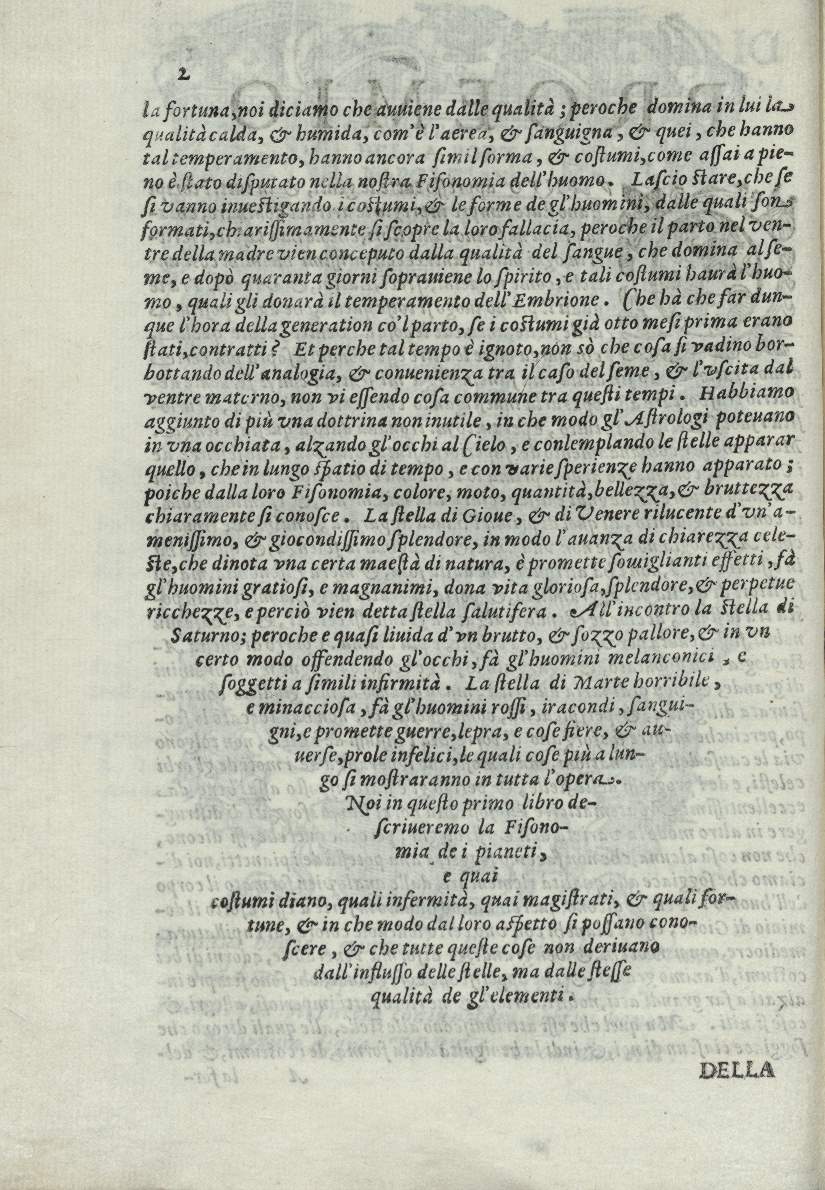 2
la fortuna,noi diciamo che auuiene dalle qualità ; peroche domina in lui la
qualità calda, & humida, com'è l'aerea, & sanguigna, & quei, che hanno
tal temperamento, hanno ancora simil forma, & costumi,come assai a pie-
no è stato disputato nella nostra Fisonomia dell'huomo. Lascio stare,che se
si vanno inuestigando i costumi,& le forme de gl'huomini, dalle quali son
formati,chiarissimamente si scopre la loro fallacia, peroche il parto nel ven-
tre della madre vien conceputo dalla qualità del sangue, che domina al se-
me, e dopò quaranta giorni soprauiene lo spirito, e tali costumi haurà l'huo-
mo, quali gli donarà il temperamento dell'Embrione. Che hà che far dun-
que l'hora della generation co'l parto, se i costumi già otto mesi prima erano
stati,contratti? Et perche tal tempo è ignoto,non sò che cosa si vadino bor-
bottando dell'analogia, & conuenienza tra il caso del seme, & l'vscita dal
ventre materno, non vi essendo cosa commune tra questi tempi. Habbiamo
aggiunto di più vna dottrina non inutile, in che modo gl'Astrologi poteuano
in vna occhiata, alzando gl'occhi al Cielo, e contemplando le stelle apparar
quello, che in lungo spatio di tempo, e con varie sperienze hanno apparato ;
poiche dalla loro Fisonomia, colore, moto, quantità,bellezza,& bruttezza
chiaramente si conosce. La stella di Gioue, & di Venere rilucente d'vn'a-
menissimo, & giocondissimo splendore, in modo l'auanza di chiarezza cele-
ste,che dinota vna certa maestà di natura, è promette somiglianti effetti, fà
gl'huomini gratiosi, e magnanimi, dona vita gloriosa,splendore,& perpetue
ricchezze, e perciò vien detta stella salutifera. All'incontro la stella di
Saturno; peroche e quasi liuida d'vn brutto, & sozzo pallore, & in vn
certo modo offendendo gl'occhi, fà gl'huomini melanconici, e
soggetti a simili infirmità. La stella di Marte horribile,
e minacciosa, fà gl'huomini rossi, iracondi, sangui-
gni,e promette guerre,lepra, e cose fiere, & au-
uerse,prole infelici,le quali cose più a lun-
go si mostraranno in tutta l'opera.
Noi in questo primo libro de-
scriueremo la Fisono-
mia de i pianeti,
e quai
costumi diano, quali infermità, quai magistrati, & quali for-
tune, & in che modo dal loro aspetto si possano cono-
scere, & che tutte queste cose non deriuano
dall'influsso delle stelle, ma dalle stesse
qualità de gl'elementi.
DELLA